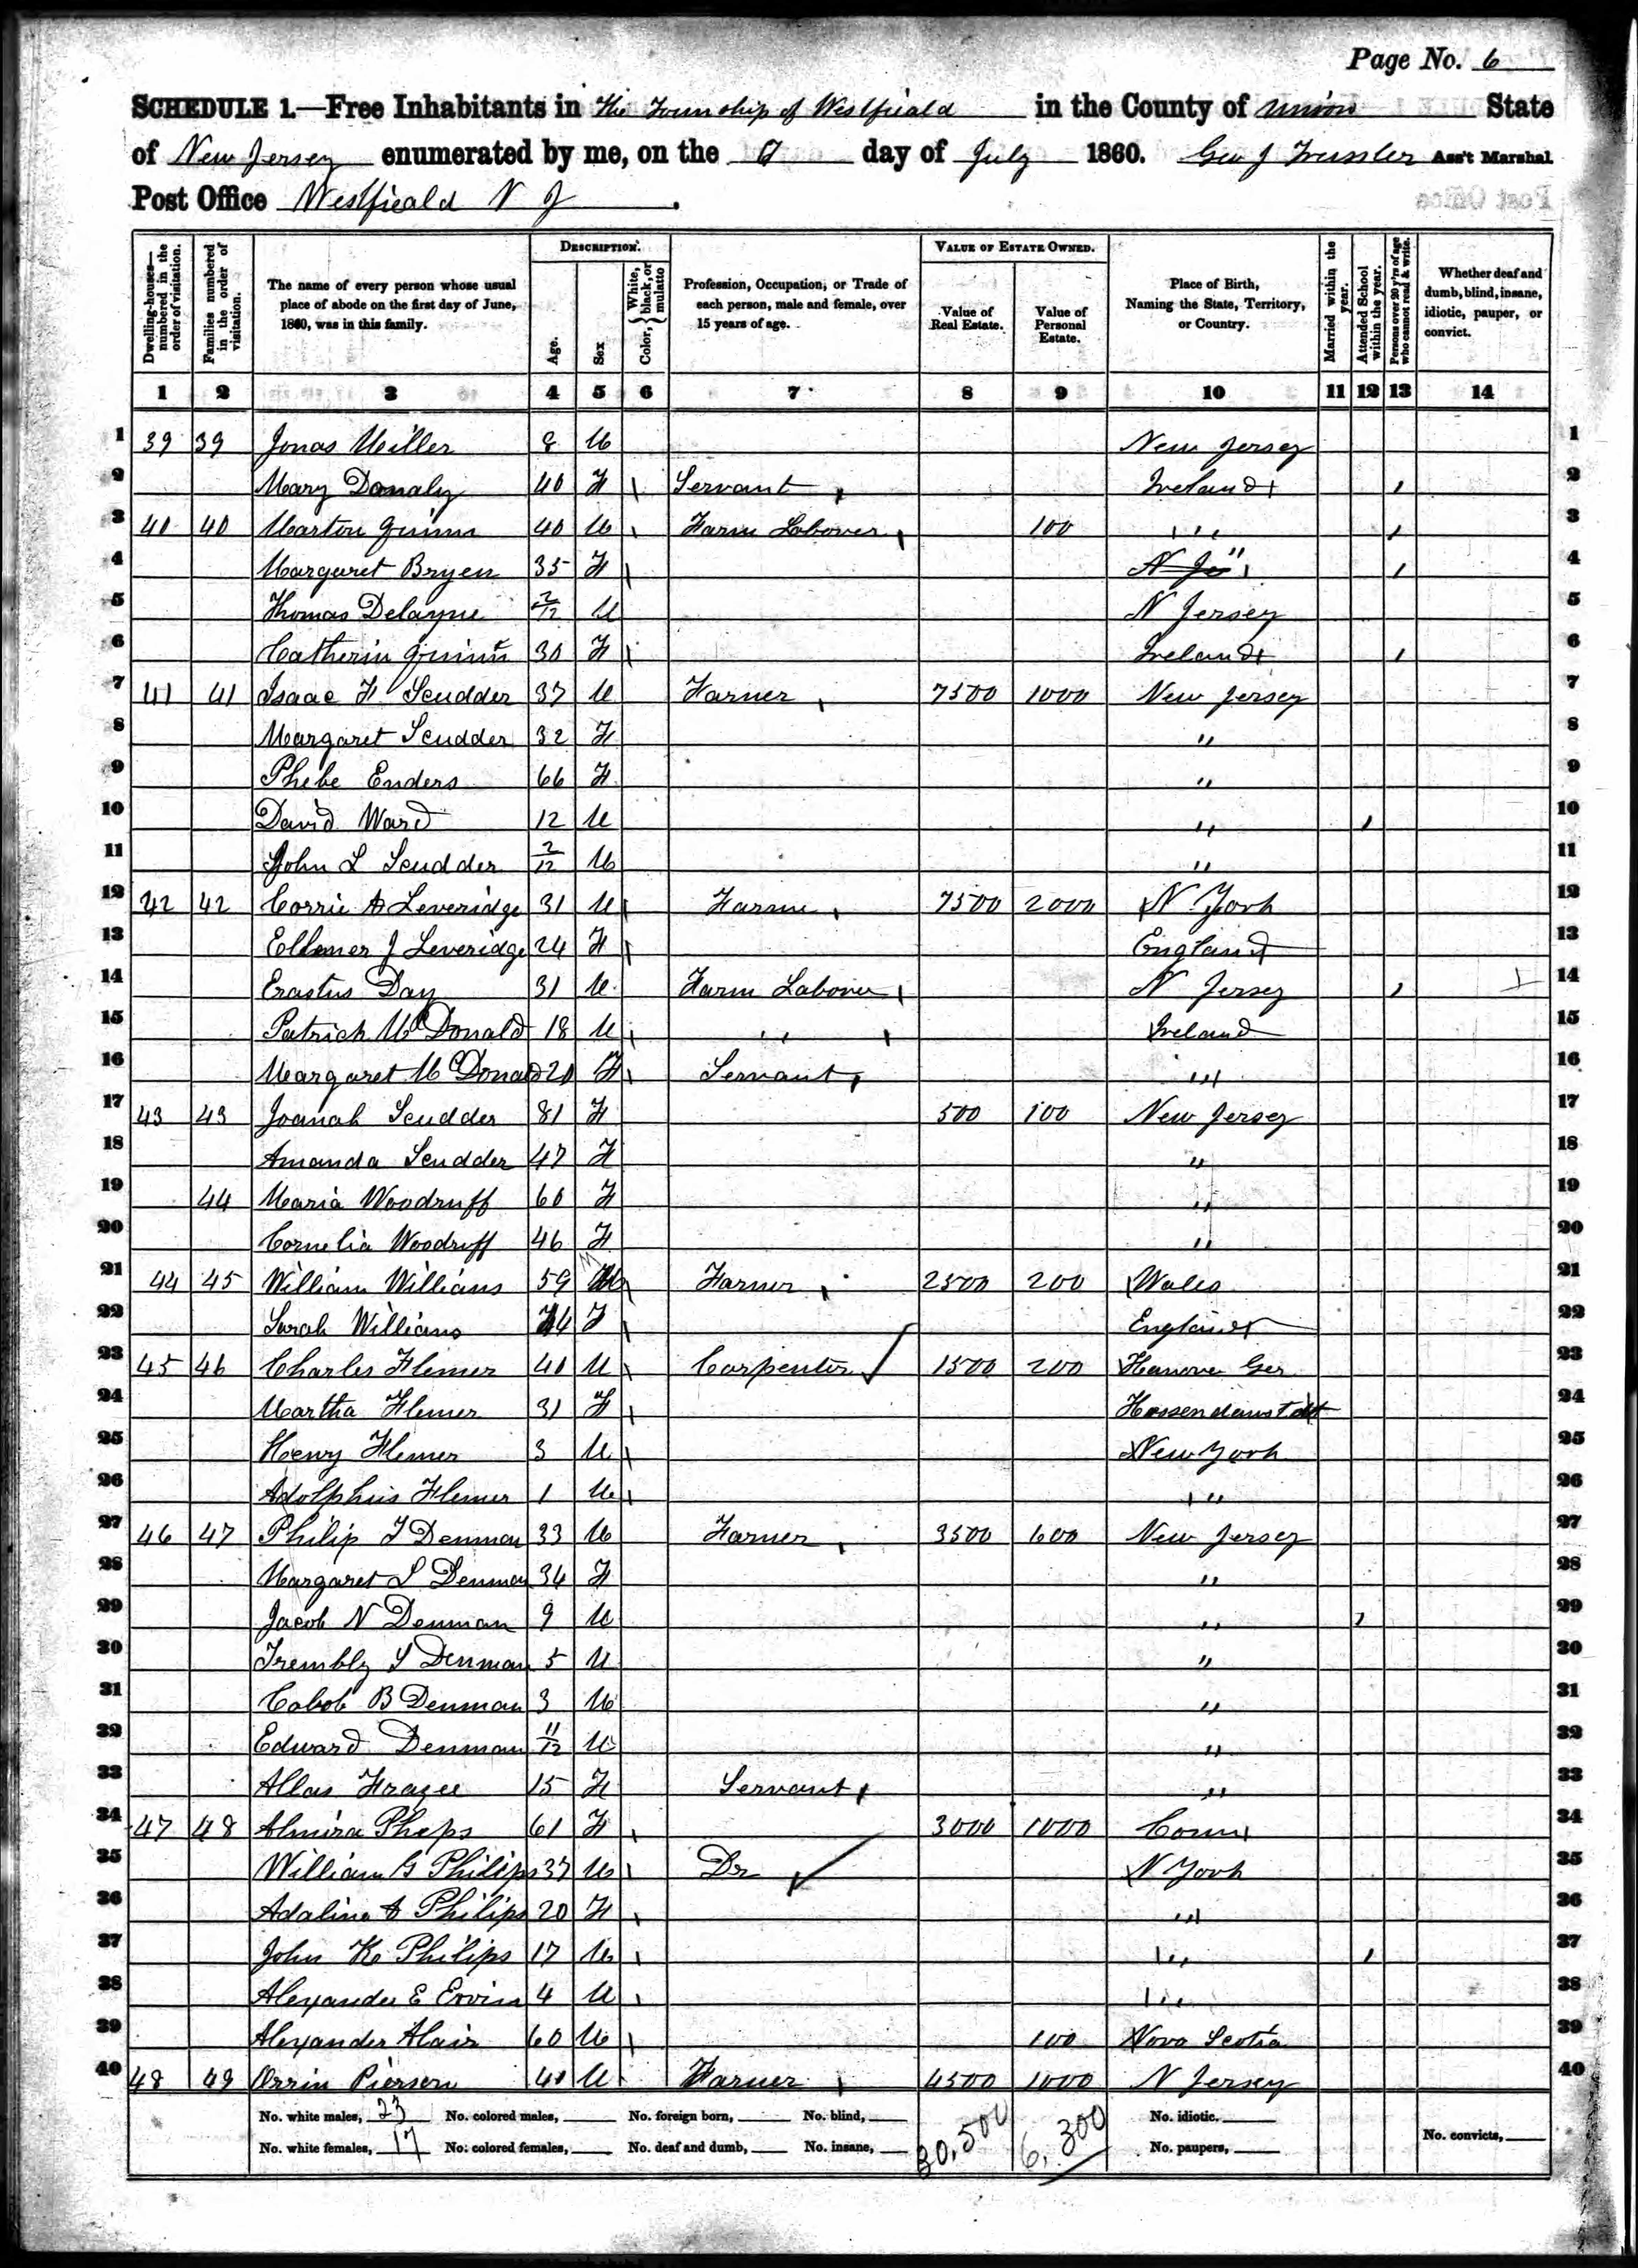 Page No. 6
SCHEDULE 1.—Free Inhabitants in The Township of Westfieald in the County of Union State
of New Jersey enumerated by me, on the day of July 1860. Geo J Ass't Marshal
Post Office Westfieald N J
Dwelling-houses—numbered in the order of visitation. Families numbered in the order of visitation. The name of every person whose usual place of abode on the first day of June, 1860, was in this family. DESCRIPTION. Age. Sex Color, White, black, or mulatto Profession, Occupation, or Trade of each person, male and female, over 15 years of age. VALUE OF ESTATE OWNED. Value of Real Estate. Value of Personal Estate. Place of Birth, Naming the State, Territory, or Country. Married within the year. Attended School within the year. Persons over 20 y'rs of age who cannot read & write. Whether deaf and dumb, blind, insane, idiotic, pauper, or convict.
1 2 3 4 5 6 7 8 9 10 11 12 13 14
1 39 39 Jonas Miller 8 M New Jersey 1
2 Mary Donaly 40 F \ Servant Ireland 1 2
3 40 40 Marton Quinn 40 M \ Farm Laborer 100 " 1 3
4 Margaret Bryen 35 F \ N Je " 1 4
5 Thomas Delayne 2/12 M N Jersey 5
6 Catherin Quinn 30 F \ Ireland 1 6
7 41 41 Isaac F Scudder 37 M Farmer 7500 1000 New Jersey 7
8 Margaret Scudder 32 F " 8
9 Phebe Enders 66 F " 9
10 David Ward 12 M " 1 10
11 John L Scudder 2/12 M " 11
12 42 42 Corrie A Leveridge 31 M \ Farme 7500 2000 N York 12
13 J Leveridge 24 F \ England 13
14 Erastus Day 31 M Farm Laborer N Jersey 1 14
15 Patrick McDonald 18 M \ " Ireland 15
16 Margaret McDonald 20 F \ Servant " 16
17 43 43 Joanah Scudder 81 F 500 100 New Jersey 17
18 Amanda Scudder 47 F " 18
19 44 Maria Woodruff 60 F " 19
20 Cornelia Woodruff 46 F " 20
21 44 45 William Willians 59 M \ Farmer 2500 200 Wales 21
22 Sarah Willians F \ England 22
23 45 46 Charles Flemer 40 M \ Carpenter 1500 200 Hanover Ger 23
24 Martha Flemer 31 F \ Hessendamstadt 24
25 Henry Flemer 3 M \ New York 25
26 Adolphus Flemer 1 M \ " 26
27 46 47 Philip T Denman 33 M Farmer 3500 600 New Jersey 27
28 Margaret S Denman 34 F " 28
29 Jacob N Denman 9 M " 1 29
30 Trembly S Denman 5 M " 30
31 Caleb B Denman 3 M " 31
32 Edward Denman 11/12 M " 32
33 Frazee 15 F Servant " 33
34 47 48 Almira Pheps 61 F \ 3000 1000 Conn 34
35 William G Philips 37 M \ Dr N York 35
36 Adaline A Philips 20 F \ " 36
37 John K Philips 17 M \ " 1 37
38 Alexander E Ervin 4 M \ " 38
39 Alexander 60 M \ 100 Nova Scotia 39
40 48 49 Orrin Pierson 40 M Farmer 4500 1000 N Jersey 40
No. white males, 23 No. colored males, No. foreign born, No. blind, 30,500 6,300 No. idiotic.
No. white females, 17 No. colored females, No. deaf and dumb, No. insane, No. paupers, No. convicts,